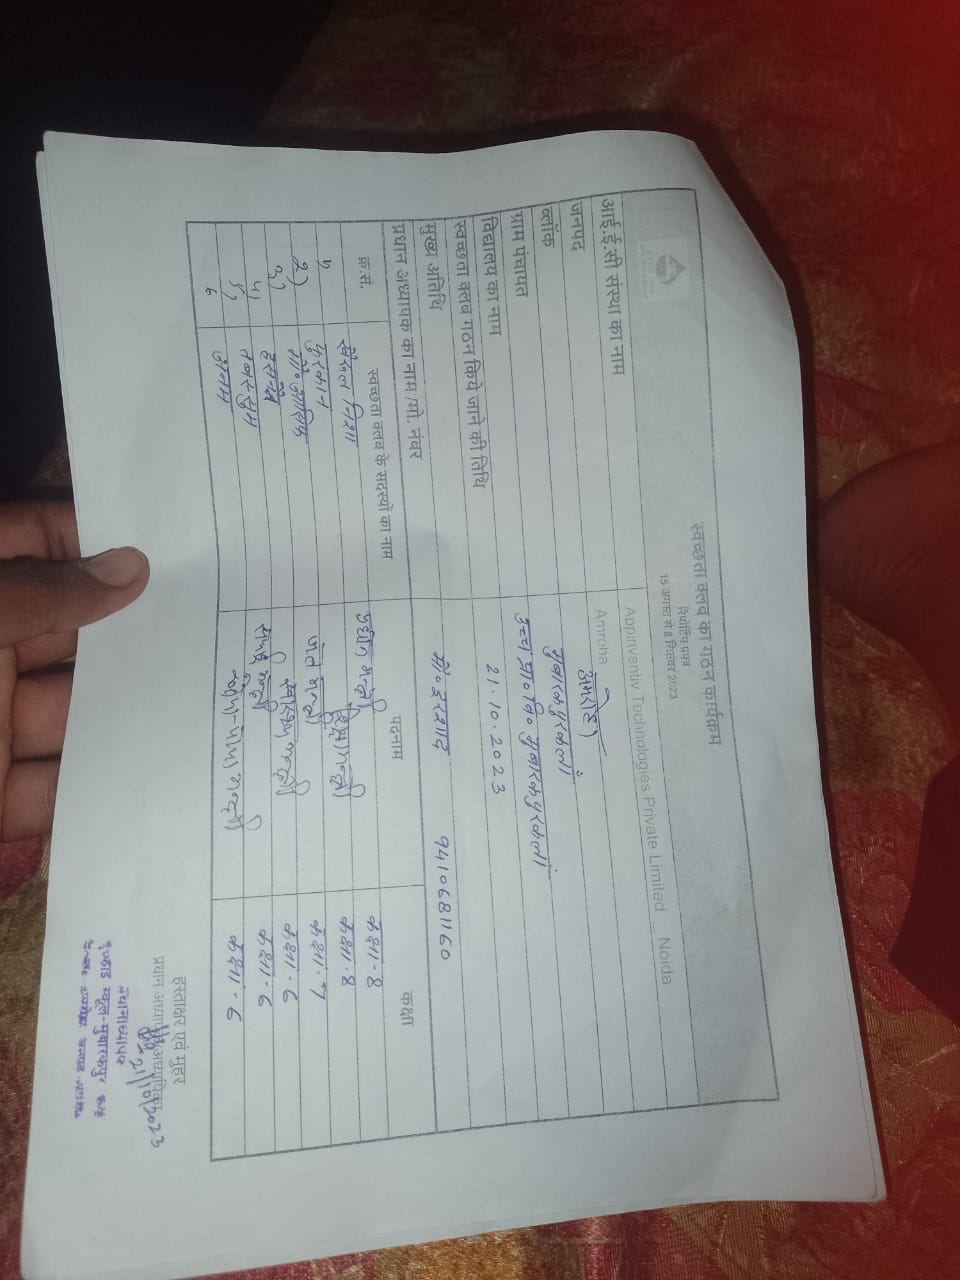 स्वच्छता क्लब का गठन कार्यक्रम
रिपोर्टिंग प्रपत्र
15 अगस्त से 8 सितंबर 2023
आई.ई.सी संस्था का नाम Appinventiv Technologies Private Limited Noida
जनपद Amroha अमरोहा
ब्लॉक
ग्राम पंचायत मुबारकपुर कलां
विद्यालय का नाम उच्च प्रा० वि० मुबारकपुर कलां
स्वच्छता क्लब गठन किये जाने की तिथि 21.10.2023
मुख्य अतिथि
प्रधान अध्यापक का नाम/मो. नंबर मो० इरशाद 9410681160
क्र.सं. स्वच्छता क्लब के सदस्यों का नाम पदनाम कक्षा
निशा मन्त्री कक्षा-8
2) फुरकान मन्त्री कक्षा-8
3) मो० जल मन्त्री कक्षा-7
4) मन्त्री कक्षा-6
5) तबस्सुम मन्त्री कक्षा-6
6 अनम मन्त्री कक्षा-6
हस्ताक्षर एवं मुहर
प्रधान
21/10/2023
प्रधानाध्यापक